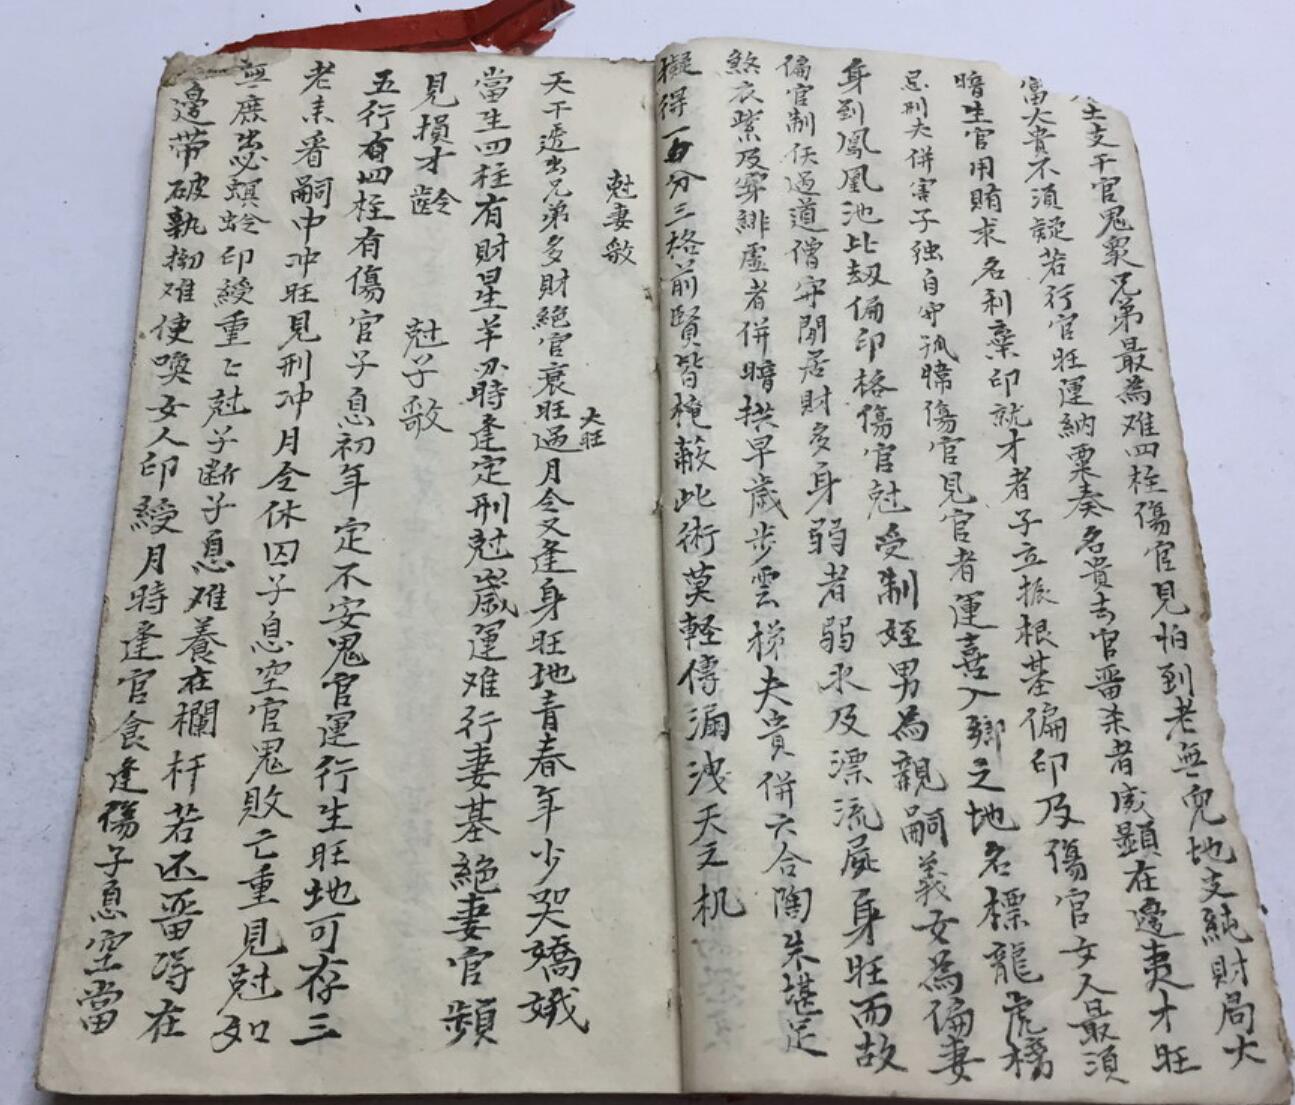 生支干官鬼衆兄弟最為难四柱傷官見怕到老無兒地支純財局大
富大貴不須疑若行官旺運納粟奏名貴去官畄杀者威顯在邊夷才旺
暗生官用賄求名利棄印就才者子立振根基偏印及傷官女人最須
忌刑夫併害子独自守孤幃傷官見官者運喜入鄉之地名標龍虎榜
身到鳳凰池比刼偏印格傷官尅受制姪男為親嗣義女為偏妻
偏官制伏過道僧守閒居財多身弱者弱水及漂流屍身旺而故
煞衣紫及穿緋虛者併暗拱早歲步雲梯夫貴併六合陶朱堪足
擬得一百分三格前賢皆掩蔽此術莫軽傳漏洩天之机
尅妻歌
天干透出兄弟多財絕官衰旺過月令又逢身旺地青春年少哭嬌娥
大旺
當生四柱有財星羊刃時逢定刑尅歲運难行妻基絕妻官頻
見損才齡
尅子歌
五行有四柱有傷官子息初年定不安鬼官運行生旺地可存三
老未看嗣中冲旺見刑冲月令休囚子息空官鬼敗亡重見尅如
無庶出必螟蛉印綬重〻尅子斷子息难養在欄杆若还畄得在
邊帶破執拗难使喚女人印綬月時逢官食逢傷子息空當